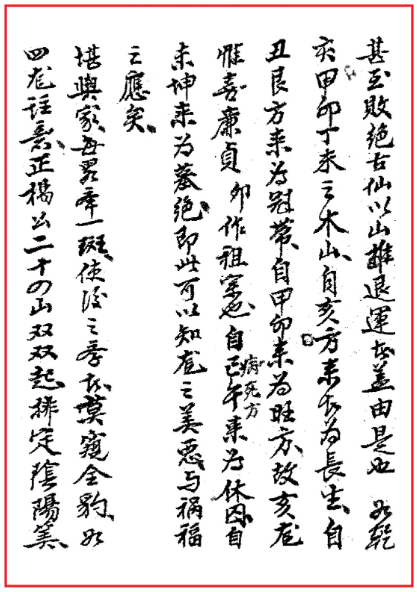 甚至敗絕古仙以山雄退運者盖由是也 如乾
亥甲卯丁未之木山自亥方来者为長生自
丑艮方来为冠帶自甲卯来为旺方故亥龙
惟喜廉貞卯作祖宗也自巳午来为休囚自
病死方
未坤来为墓绝即此可以知龙之美惡与祸福
之應矣
堪輿家每畧舉一斑使後之學者莫窺全豹如
四龙註素正穚公二十四山双双起排定陰陽筭